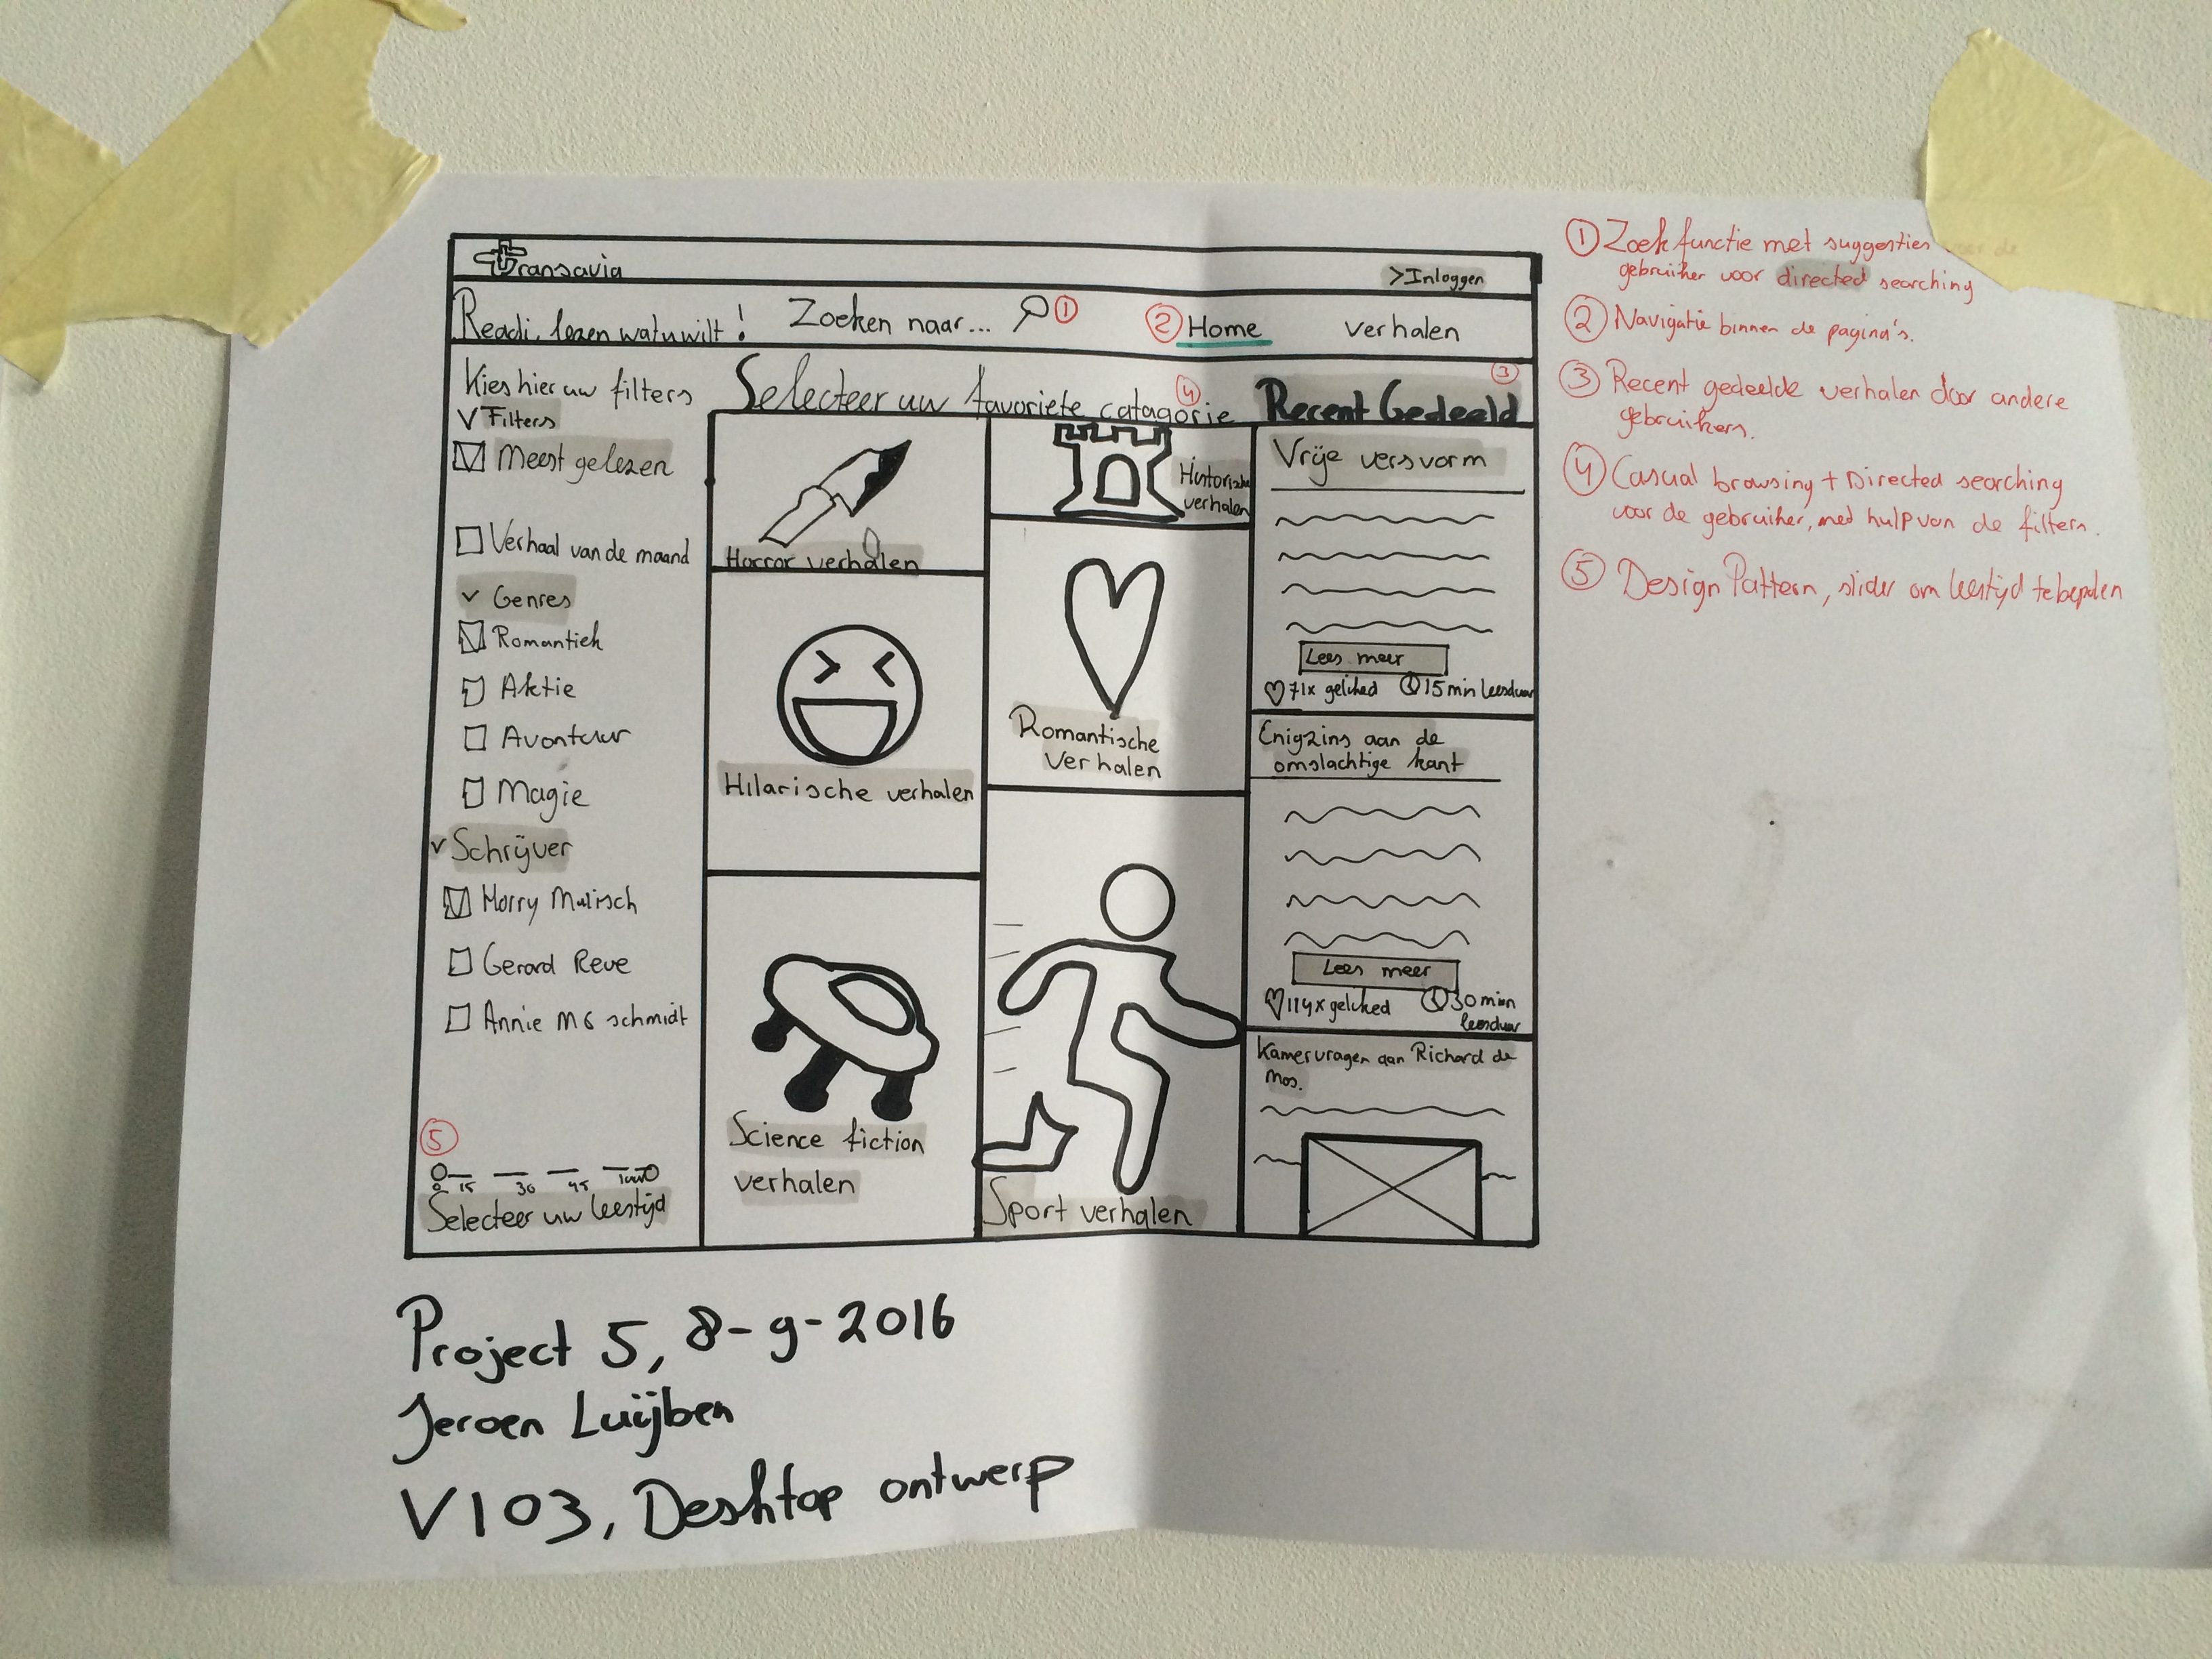 transavia
>Inloggen
Readi, lezen wat u wilt! Zoeken naar... 1 2 Home verhalen
Kies hier uw filters
V Filters
Meest gelezen
Verhaal van de maand
Genres
Romantiek
Aktie
Avontuur
Magie
Schrijver
Harry Mulisch
Gerard Reve
Annie MG schmidt
5
0 15 30 45 1uur
Selecteer uw leestijd
Selecteer uw favoriete catagorie 4
Horror verhalen
Historische
verhalen
Hilarische verhalen
Romantische
verhalen
Science fiction
verhalen
Sport verhalen
Recent Gedeeld 3
Vrije versvorm
Lees meer
71x geliked 15 min leesduur
Enigzins aan de
omslachtige kant
Lees meer
114x geliked 30 min
leesduur
Kamervragen aan Richard de
Mos.
1 Zoekfunctie met suggesties de
gebruiker voor directed searching
2 Navigatie binnen de pagina's.
3 Recent gedeelde verhalen door andere
gebruikers.
4 Casual browsing + Directed searching
voor de gebruiker, met hulp van de filters.
5 Design Pattern, slider om leestijd te bepalen
Project 5, 8-9-2016
Jeroen Luijben
V103, Desktop ontwerp